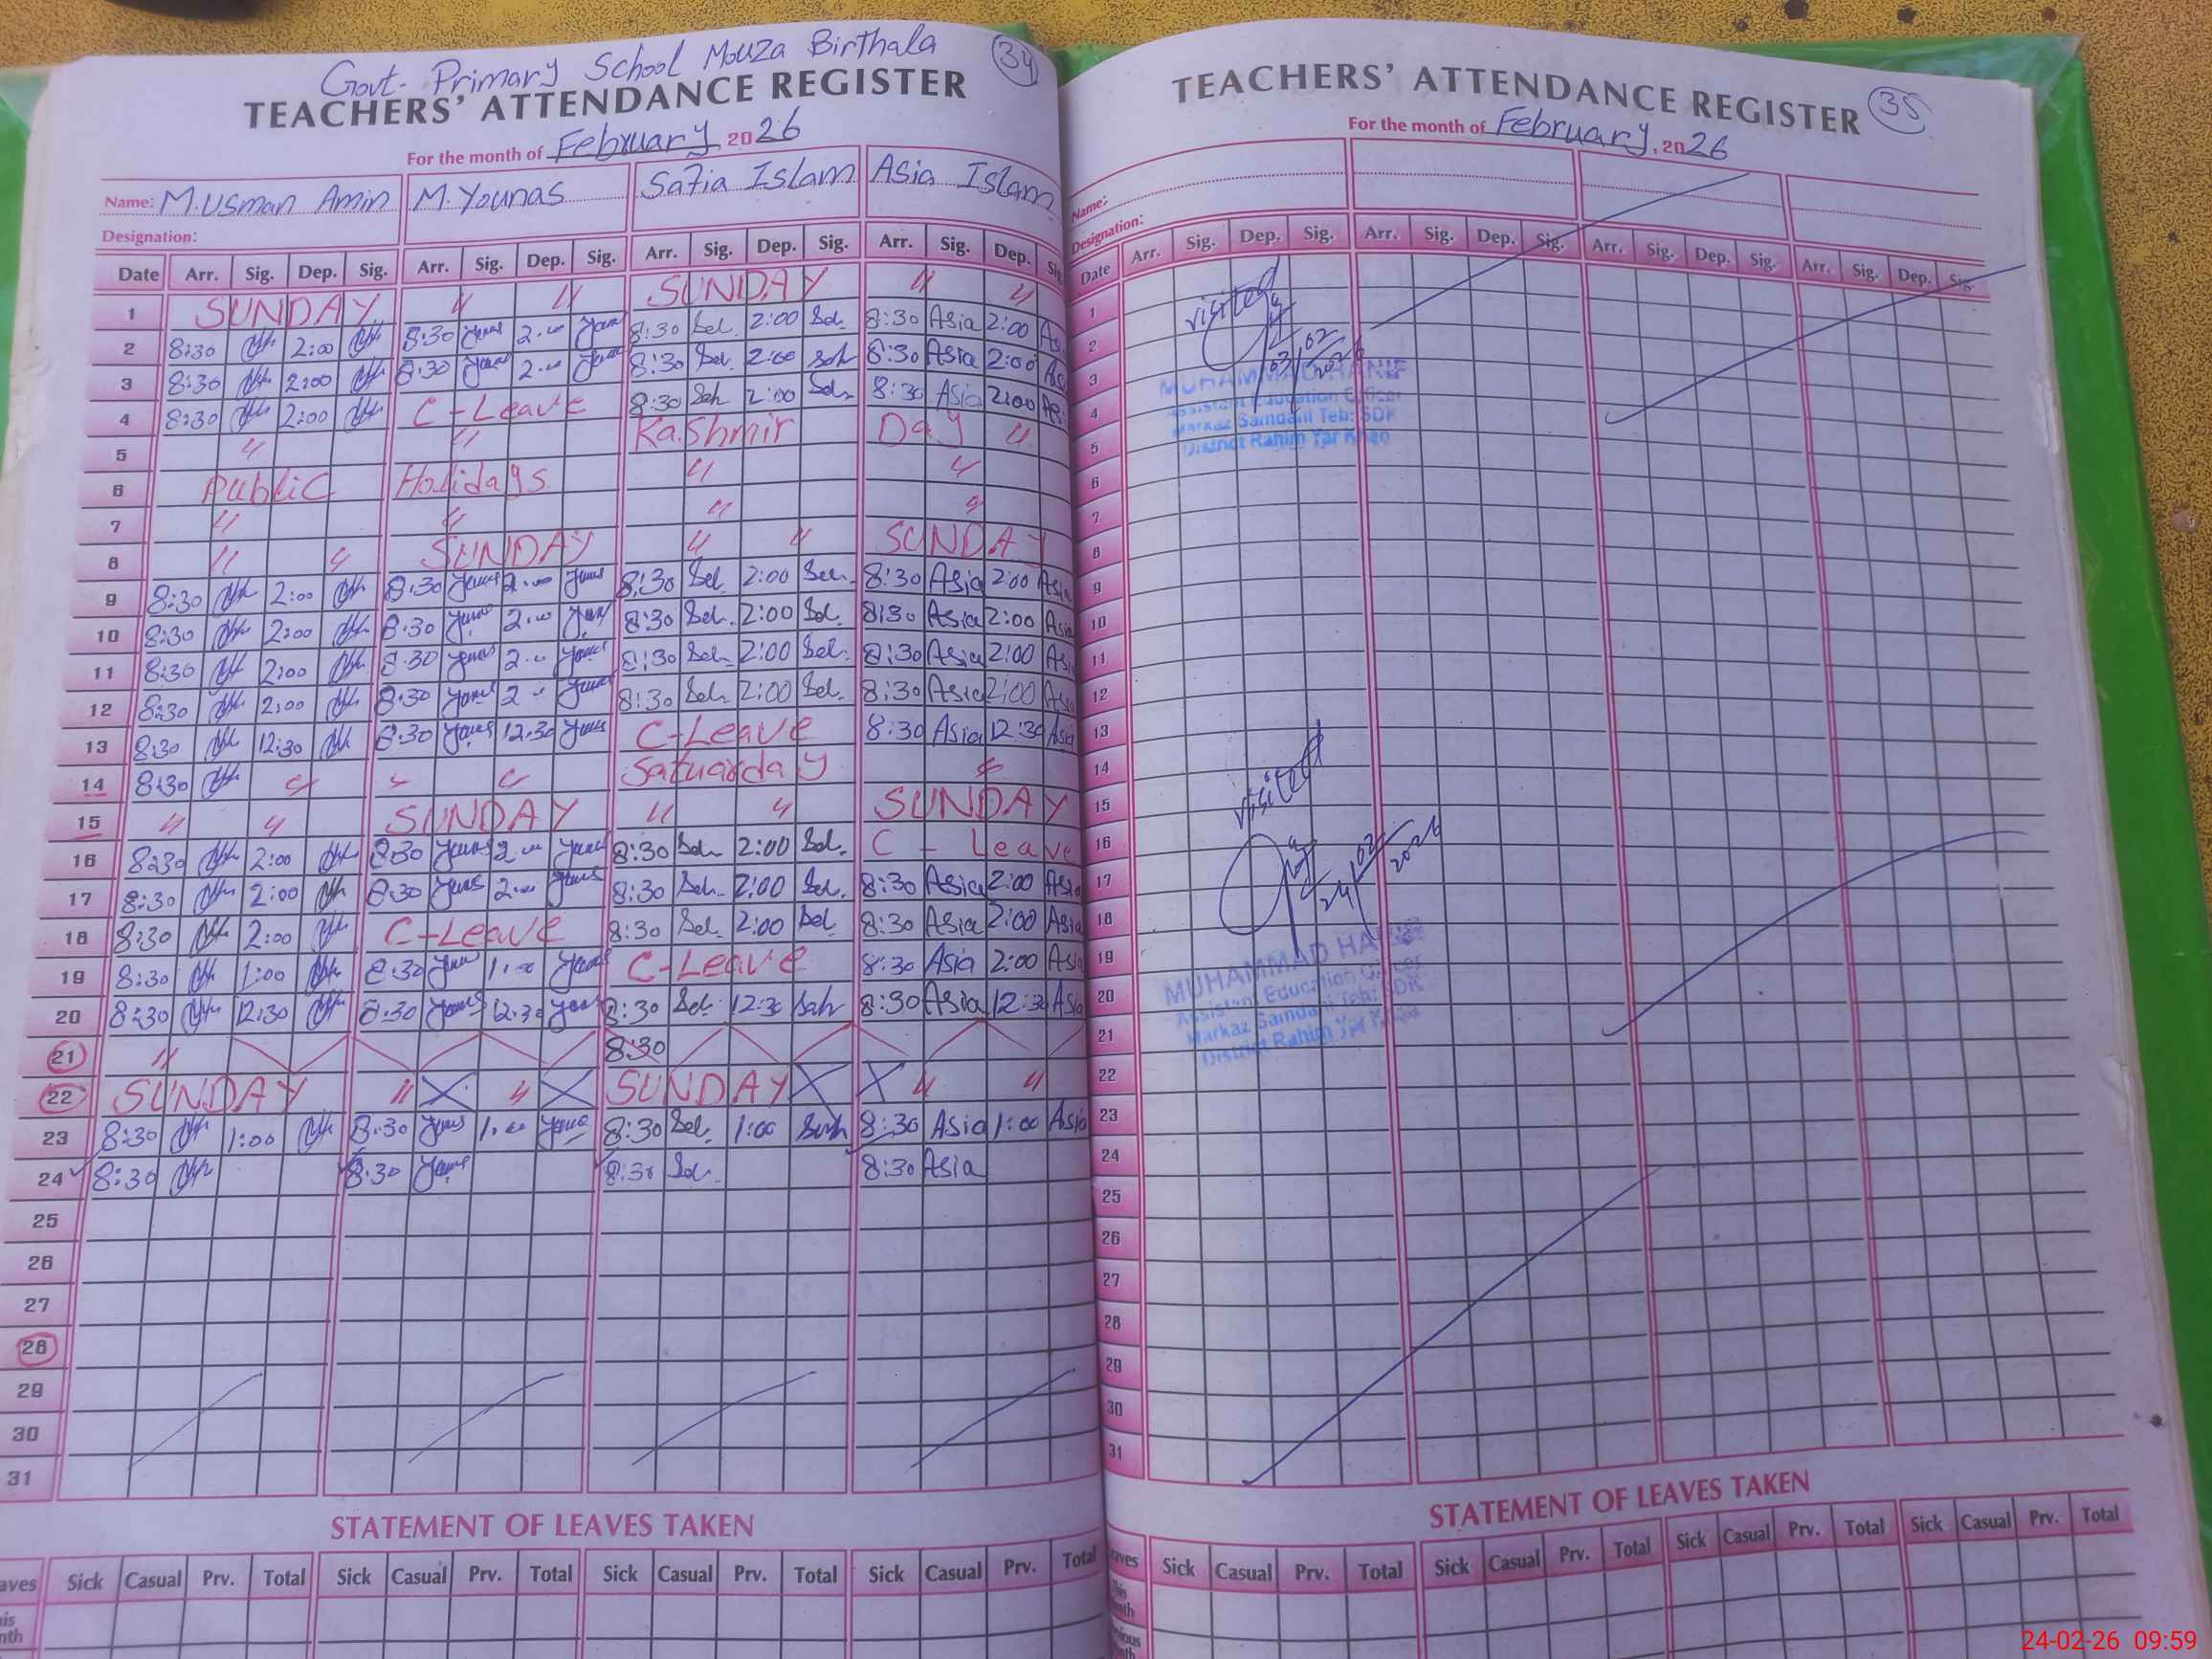 Govt. Primary School Mouza Birthala
34
TEACHERS' ATTENDANCE REGISTER
For the month of February 2026
Name: M.Usman Amin M.Younas Safia Islam Asia Islam
Designation:
Date Arr. Sig. Dep. Sig. Arr. Sig. Dep. Sig. Arr. Sig. Dep. Sig. Arr. Sig. Dep.
1 SUNDAY " " SUNDAY " "
2 8:30 2:00 8:30 2.00 8:30 2:00 8:30 Asia 2:00
3 8:30 2:00 8:30 2.00 8:30 2:00 8:30 Asia 2:00
4 8:30 2:00 C-Leave 8:30 2:00 8:30 Asia 2:00
5 " " Kashmir Day "
6 Public Holidays " "
7 " " " "
8 " " SUNDAY " " SUNDAY
9 8:30 2:00 8.30 2.00 8:30 2:00 8:30 Asia 2:00 Asia
10 8:30 2:00 8.30 2.00 8:30 2:00 8:30 Asia 2:00 Asia
11 8:30 2:00 8.30 2.00 8:30 2:00 8:30 Asia 2:00
12 8:30 2:00 8:30 2 8:30 2:00 8:30 Asia 2:00
13 8:30 12:30 8.30 12.30 C-Leave 8:30 Asia 12:30 Asia
14 8:30 " " " Satuarday "
15 " " SUNDAY " " SUNDAY
16 8:30 2:00 8:30 2.00 8:30 2:00 C - Leave
17 8:30 2:00 8:30 2.00 8:30 2:00 8:30 Asia 2:00 Asia
18 8:30 2:00 C-Leave 8:30 2:00 8:30 Asia 2:00 Asia
19 8:30 1:00 8:30 1.00 C-Leave 8:30 Asia 2:00 Asia
20 8:30 12:30 8.30 12.30 8:30 12:30 8:30 Asia 12:30 Asia
21 " 8:30
22 SUNDAY " " SUNDAY " "
23 8:30 1:00 8.30 1.00 8:30 1:00 8:30 Asia 1:00 Asia
24 8:30 8.30 8:30 8:30 Asia
25
26
27
28
29
30
31
STATEMENT OF LEAVES TAKEN
Sick Casual Prv. Total Sick Casual Prv. Total Sick Casual Prv. Total Sick Casual Prv. Total
TEACHERS' ATTENDANCE REGISTER
35
For the month of February, 2026
Name:
Designation:
Date Arr. Sig. Dep. Sig. Arr. Sig. Dep. Sig. Arr. Sig. Dep. Sig. Arr. Sig. Dep. Sig.
1
visited
2
03/02/2026
3
MUHAMMAD HANIF
Assistant Education Officer
4
Markaz Samdani Teh: SDK
District Rahim Yar Khan
5
6
7
8
9
10
11
12
13
14
visited
15
16
24/02/2026
17
18
19
MUHAMMAD HANIF
20
Assistant Education Officer
Markaz Samdani Teh: SDK
21
District Rahim Yar Khan
22
23
24
25
26
27
28
29
30
31
STATEMENT OF LEAVES TAKEN
Sick Casual Prv. Total Sick Casual Prv. Total Sick Casual Prv. Total Sick Casual Prv. Total
24-02-26 09:59